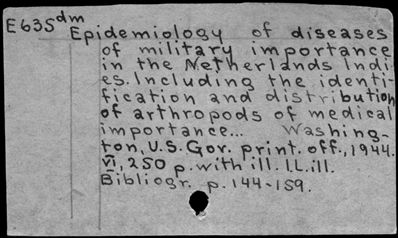 E635dm
Epidemiology of diseases
of military importance
in the Netherlands Indi-
es. Including the identi-
fication and distribution
of arthropods of medical
importance... Washing-
ton, U.S. Gov. print. off., 1944.
VI, 250 p. with ill. I.L. ill.
Bibliogr. p. 144-159.